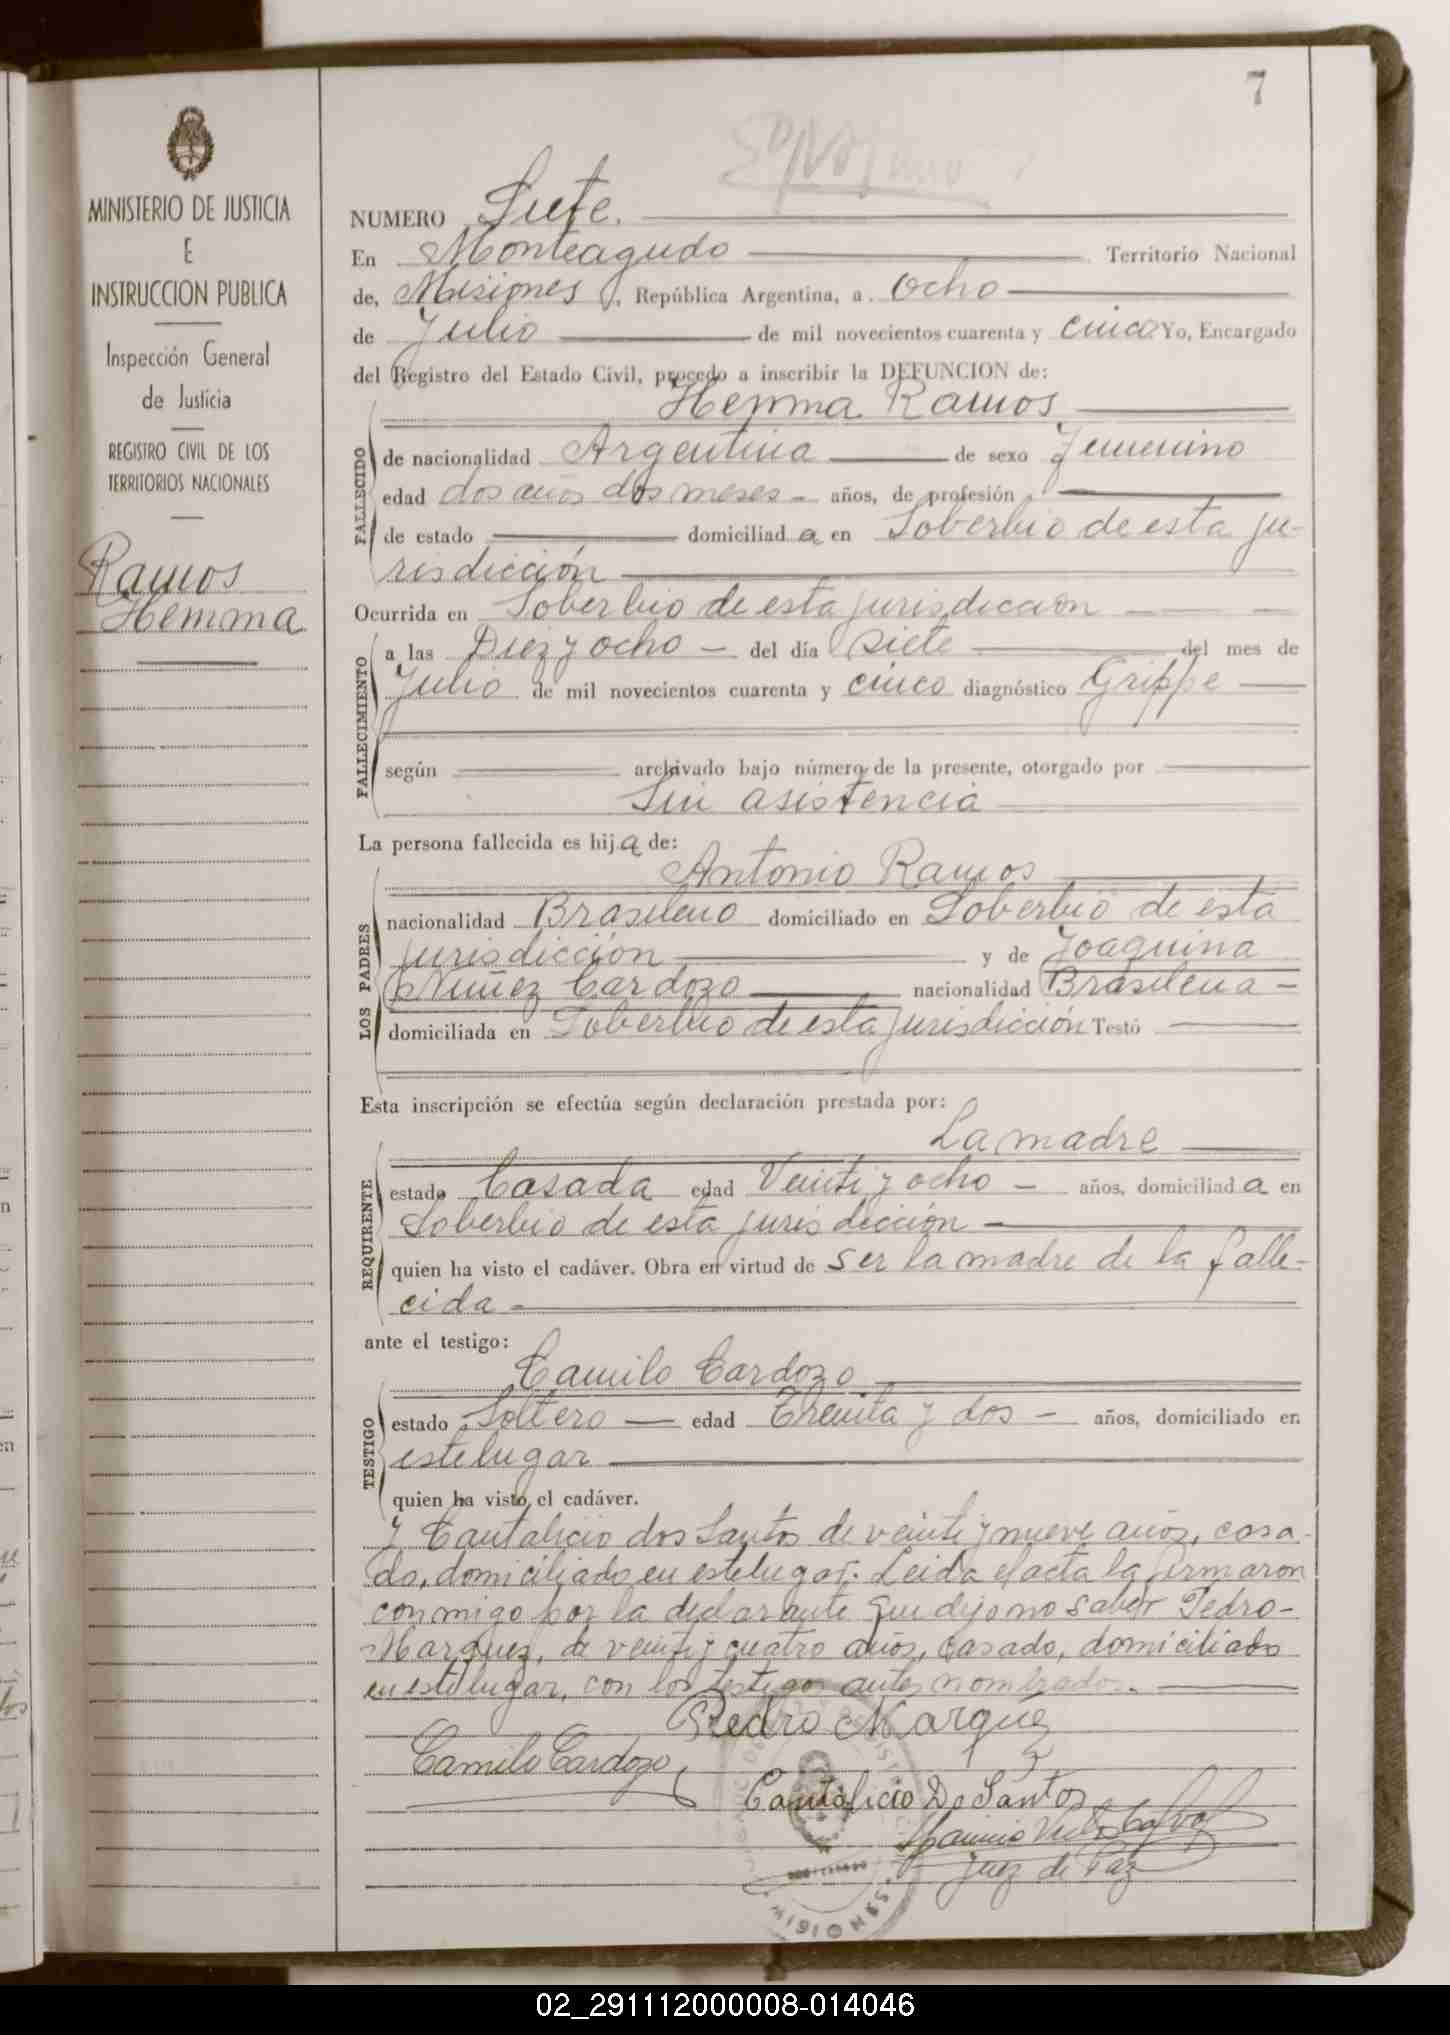 7
MINISTERIO DE JUSTICIA
E
INSTRUCCION PUBLICA
Inspección General
de Justicia
REGISTRO CIVIL DE LOS
TERRITORIOS NACIONALES
Ramos
Hemma
NUMERO Siete.
En Monteagudo Territorio Nacional
de, Misiones, República Argentina, a. Ocho
de Julio de mil novecientos cuarenta y cinco Yo, Encargado
del Registro del Estado Civil, procedo a inscribir la DEFUNCION de:
Hemma Ramos
FALLECIDO
de nacionalidad Argentina de sexo Femenino
edad dos años dos meses - años, de profesión
de estado domiciliad a en Soberbio de esta ju-
risdicción
Ocurrida en Soberbio de esta jurisdicción
FALLECIMIENTO
a las Diez y ocho - del día siete del mes de
Julio de mil novecientos cuarenta y cinco diagnóstico Grippe
según archivado bajo número de la presente, otorgado por
Sin asistencia
La persona fallecida es hij a de:
Antonio Ramos
LOS PADRES
nacionalidad Brasileno domiciliado en Soberbio de esta
jurisdicción y de Joaquina
Nuñez Cardozo nacionalidad Brasilena -
domiciliada en Soberbio de esta jurisdicción Testó
Esta inscripción se efectúa según declaración prestada por:
La madre
REQUIRENTE
estado Casada edad Veinti y ocho - años, domiciliad a en
Soberbio de esta jurisdicción -
quien ha visto el cadáver. Obra en virtud de ser la madre de la falle-
cida -
ante el testigo:
Camilo Cardozo
TESTIGO
estado Soltero edad Treinta y dos - años, domiciliado en
este lugar
quien ha visto el cadáver.
y Cantalicio dos Santos de veinti y nueve años, casa-
do, domiciliado en este lugar. Leida el acta la firmaron
conmigo por la declarante que dijo no saber Pedro-
Marquez, de veinti y cuatro años, casado, domiciliado
en este lugar, con los testigos antes nombrados.
Pedro Marquez
Camilo Cardozo
Cantalicio Do Santos
Juez de Paz
MISIONES
02_291112000008-014046